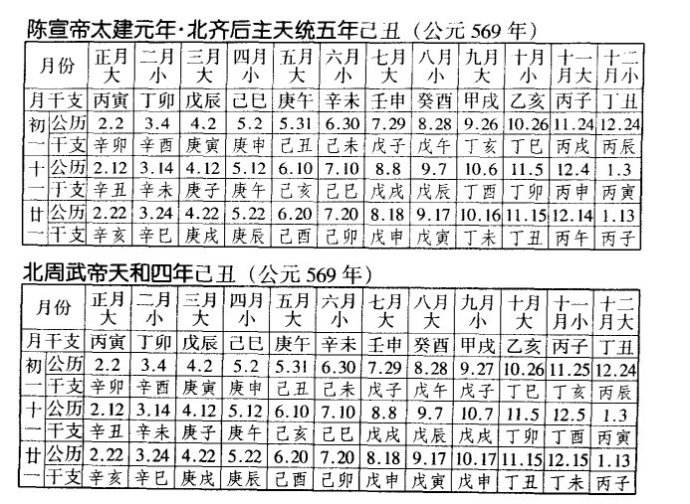 陈宣帝太建元年·北齐后主天统五年己丑（公元569年）
月份 正月大 二月小 三月大 四月小 五月大 六月小 七月大 八月小 九月大 十月小 十一月大 十二月小
月干支 丙寅 丁卯 戊辰 己巳 庚午 辛未 壬申 癸酉 甲戌 乙亥 丙子 丁丑
初一 公历 2.2 3.4 4.2 5.2 5.31 6.30 7.29 8.28 9.26 10.26 11.24 12.24
干支 辛卯 辛酉 庚寅 庚申 己丑 己未 戊子 戊午 丁亥 丁巳 丙戌 丙辰
十一 公历 2.12 3.14 4.12 5.12 6.10 7.10 8.8 9.7 10.6 11.5 12.4 1.3
干支 辛丑 辛未 庚子 庚午 己亥 己巳 戊戌 戊辰 丁酉 丁卯 丙申 丙寅
廿一 公历 2.22 3.24 4.22 5.22 6.20 7.20 8.18 9.17 10.16 11.15 12.14 1.13
干支 辛亥 辛巳 庚戌 庚辰 己酉 己卯 戊申 戊寅 丁未 丁丑 丙午 丙子
北周武帝天和四年己丑（公元569年）
月份 正月大 二月小 三月大 四月小 五月大 六月小 七月大 八月大 九月小 十月大 十一月小 十二月大
月干支 丙寅 丁卯 戊辰 己巳 庚午 辛未 壬申 癸酉 甲戌 乙亥 丙子 丁丑
初一 公历 2.2 3.4 4.2 5.2 5.31 6.30 7.29 8.28 9.27 10.26 11.25 12.24
干支 辛卯 辛酉 庚寅 庚申 己丑 己未 戊子 戊午 戊子 丁巳 丁亥 丙辰
十一 公历 2.12 3.14 4.12 5.12 6.10 7.10 8.8 9.7 10.7 11.5 12.5 1.3
干支 辛丑 辛未 庚子 庚午 己亥 己巳 戊戌 戊辰 戊戌 丁卯 丁酉 丙寅
廿一 公历 2.22 3.24 4.22 5.22 6.20 7.20 8.18 9.17 10.17 11.15 12.15 1.13
干支 辛亥 辛巳 庚戌 庚辰 己酉 己卯 戊申 戊寅 戊申 丁丑 丁未 丙子